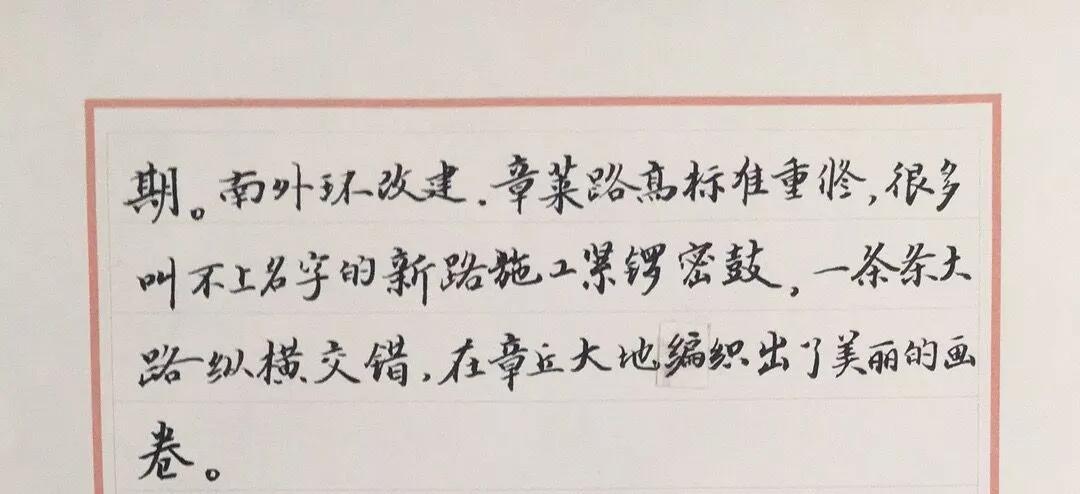 期。南外环改建.章莱路高标准重修,很多
叫不上名字的新路施工紧锣密鼓,一条条大
路纵横交错,在章丘大地编织出了美丽的画
卷。